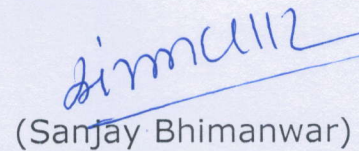 (Sanjay Bhimanwar)